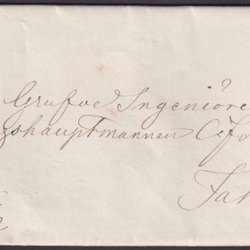 Grufve Ingeniöre
gshauptmannen O Fo
Fa